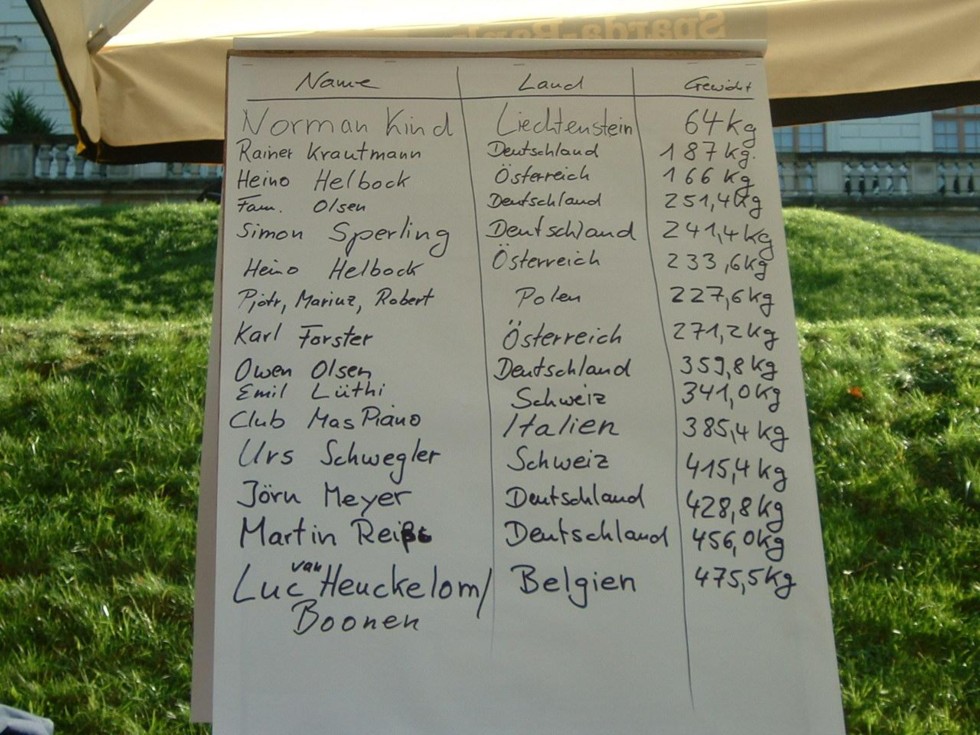 Sparda-Bank
Name Land Gewicht
Norman Kind Liechtenstein 64kg
Rainer Krautmann Deutschland 187kg.
Heino Helbock Österreich 166 kg
Fam. Olsen Deutschland 251,4kg
Simon Sperling Deutschland 241,4kg
Heino Helbock Österreich 233,6kg
Pjotr, Mariuz, Robert Polen 227,6kg
Karl Forster Österreich 271,2kg
Owen Olsen Deutschland 359,8kg
Emil Lüthi Schweiz 341,0kg
Club MasPiano Italien 385,4kg
Urs Schwegler Schweiz 415,4kg
Jörn Meyer Deutschland 428,8kg
Martin Deutschland 456,0kg
Luc van Heuckelom/ Belgien 475,5kg
Boonen